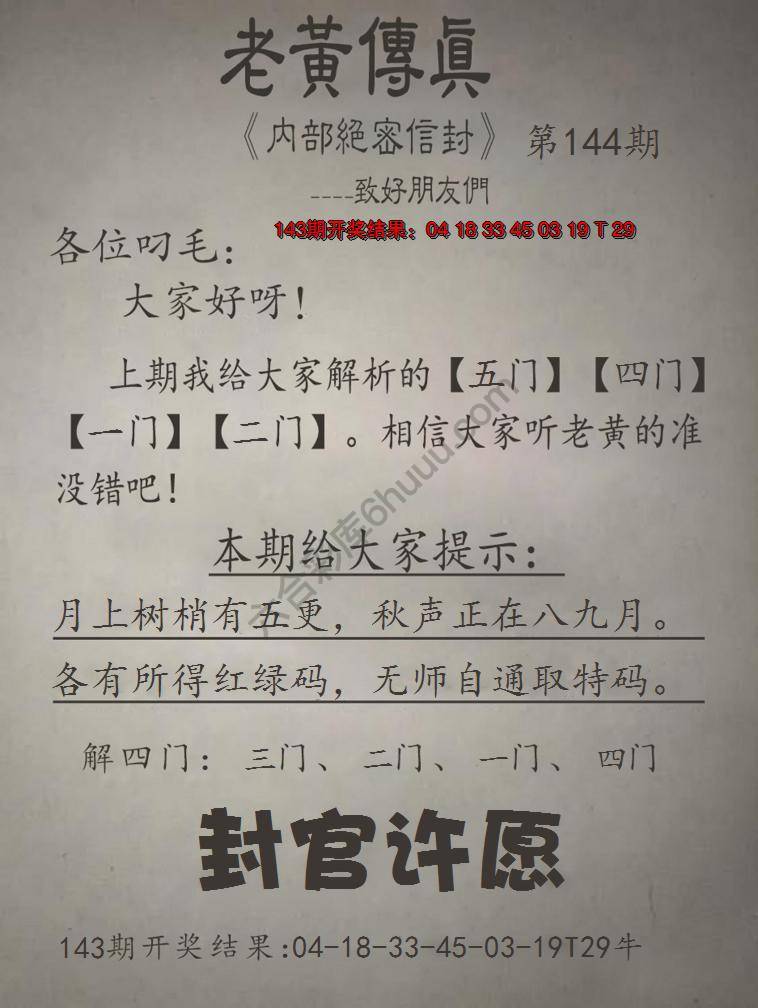 老黃傳眞
《内部絕密信封》 第144期
----致好朋友們
143期开奖结果：04 18 33 45 03 19 T 29
各位叼毛：
大家好呀！
上期我给大家解析的【五门】【四门】
【一门】【二门】。相信大家听老黄的准
没错吧！
本期给大家提示：
月上树梢有五更，秋声正在八九月。
各有所得红绿码，无师自通取特码。
解四门： 三门、 二门、 一门、 四门
封官许愿
143期开奖结果:04-18-33-45-03-19T29牛
六合彩库6huuu.com